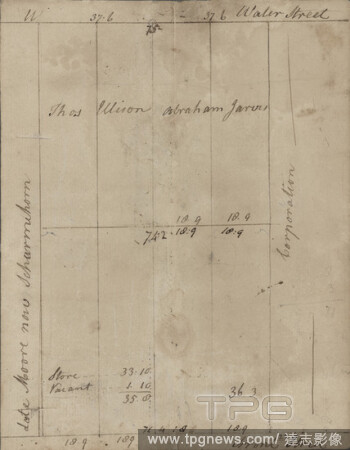 W 37.6 75 37 6 Water Street
Thos Ellison Abraham Jarvis
late Moore now Schermerhorn
Corporation
18.9 18.9
75.2 18.9 18.9
Store 33.10
Vacant 1.10
35.8
36 3
18.9 18.9 18.9
TPG
www.tpgnews.com/ 達志影像